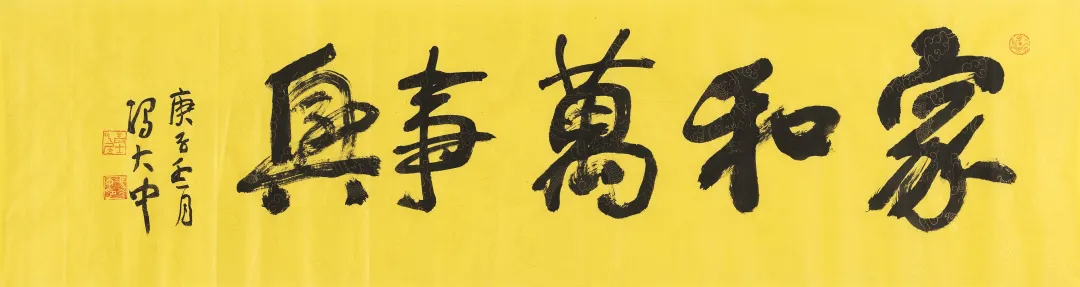 家和萬事興
庚子月
馮大中